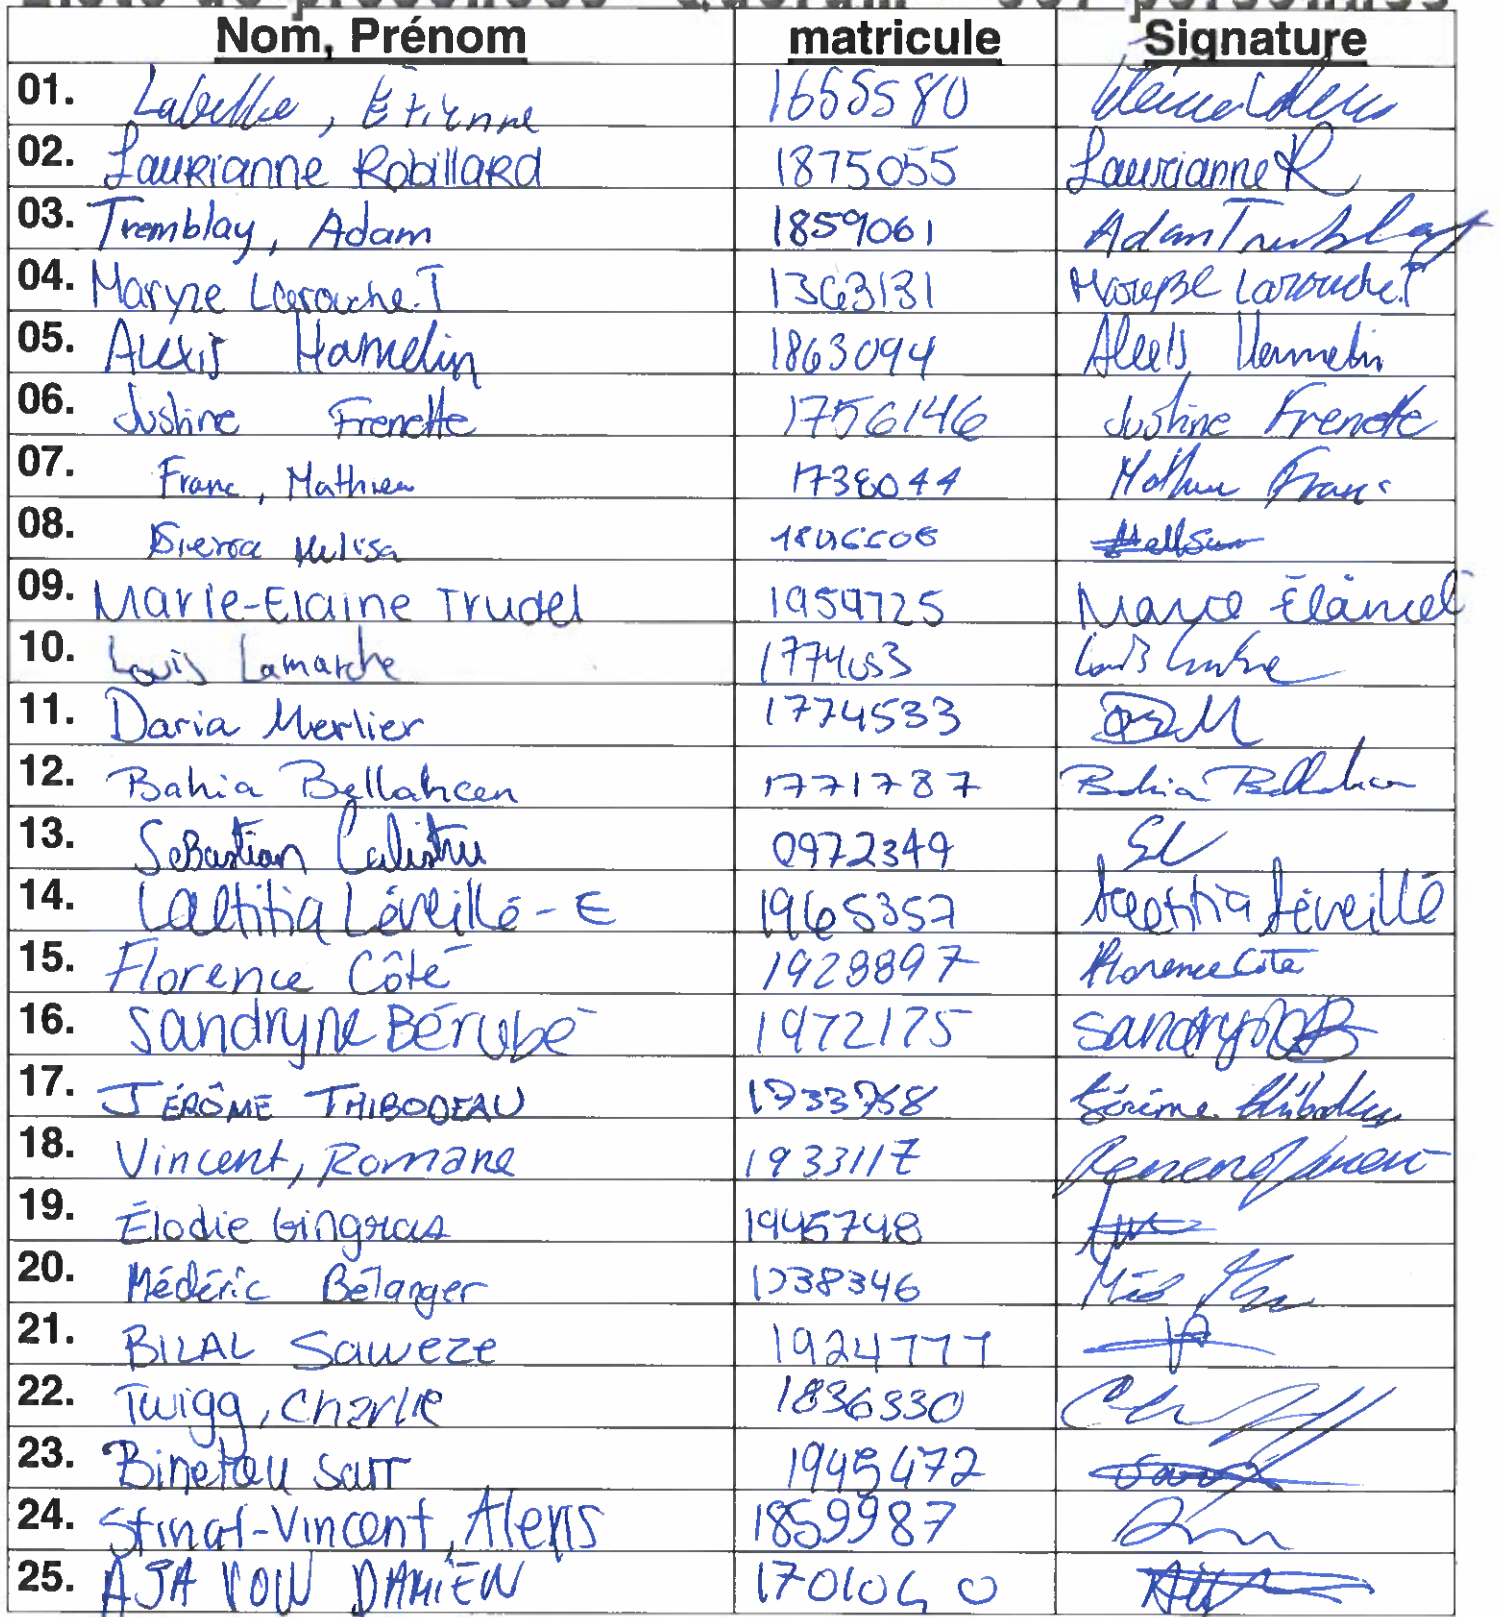 Liste de présences - Quorum - 367 personnes
Nom, Prénom matricule Signature
01. Labelle, Étienne 1655580
02. Laurianne Robillard 1875055 Laurianne R
03. Tremblay, Adam 1859061 Adam Tremblay
04. Maryze Larouche.T 1363131 Larouche.T
05. Alexis Hamelin 1863094 Alexis Hamelin
06. Justine Frenette 1756146 Justine Frenette
07. Franc, Mathieu 1738044 Mathieu Franc
08. Sierra Melisa
09. Marie-Elaine Trudel 1959725
10. Louis Lamarche 1774653
11. Daria Merlier 1774533 DM
12. Bahia Bellahcen 1771787 Bahia Bellahcen
13. Sebastian Calistru 0972349 SC
14. Laetitia Léveillé-E 1965357 Laetitia Léveillé
15. Florence Côté 1928897 Florence Côté
16. Sandryne Bérubé 1972175 Sandryne B
17. JÉRÔME THIBODEAU 1933768 Jérôme Thibodeau
18. Vincent, Romane 1933117
19. Élodie Gingras 1945748
20. Médéric Bélanger 1938346
21. BILAL Saweze 1924777
22. Twigg, Charlie 1836330
23. Binetou Sarr 1945472 Sarr
24. Alexis 1859987
25. DAMIEN